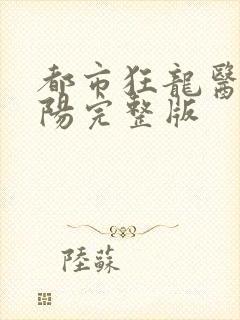 都市狂龍醫
陽完整版
陸蘇